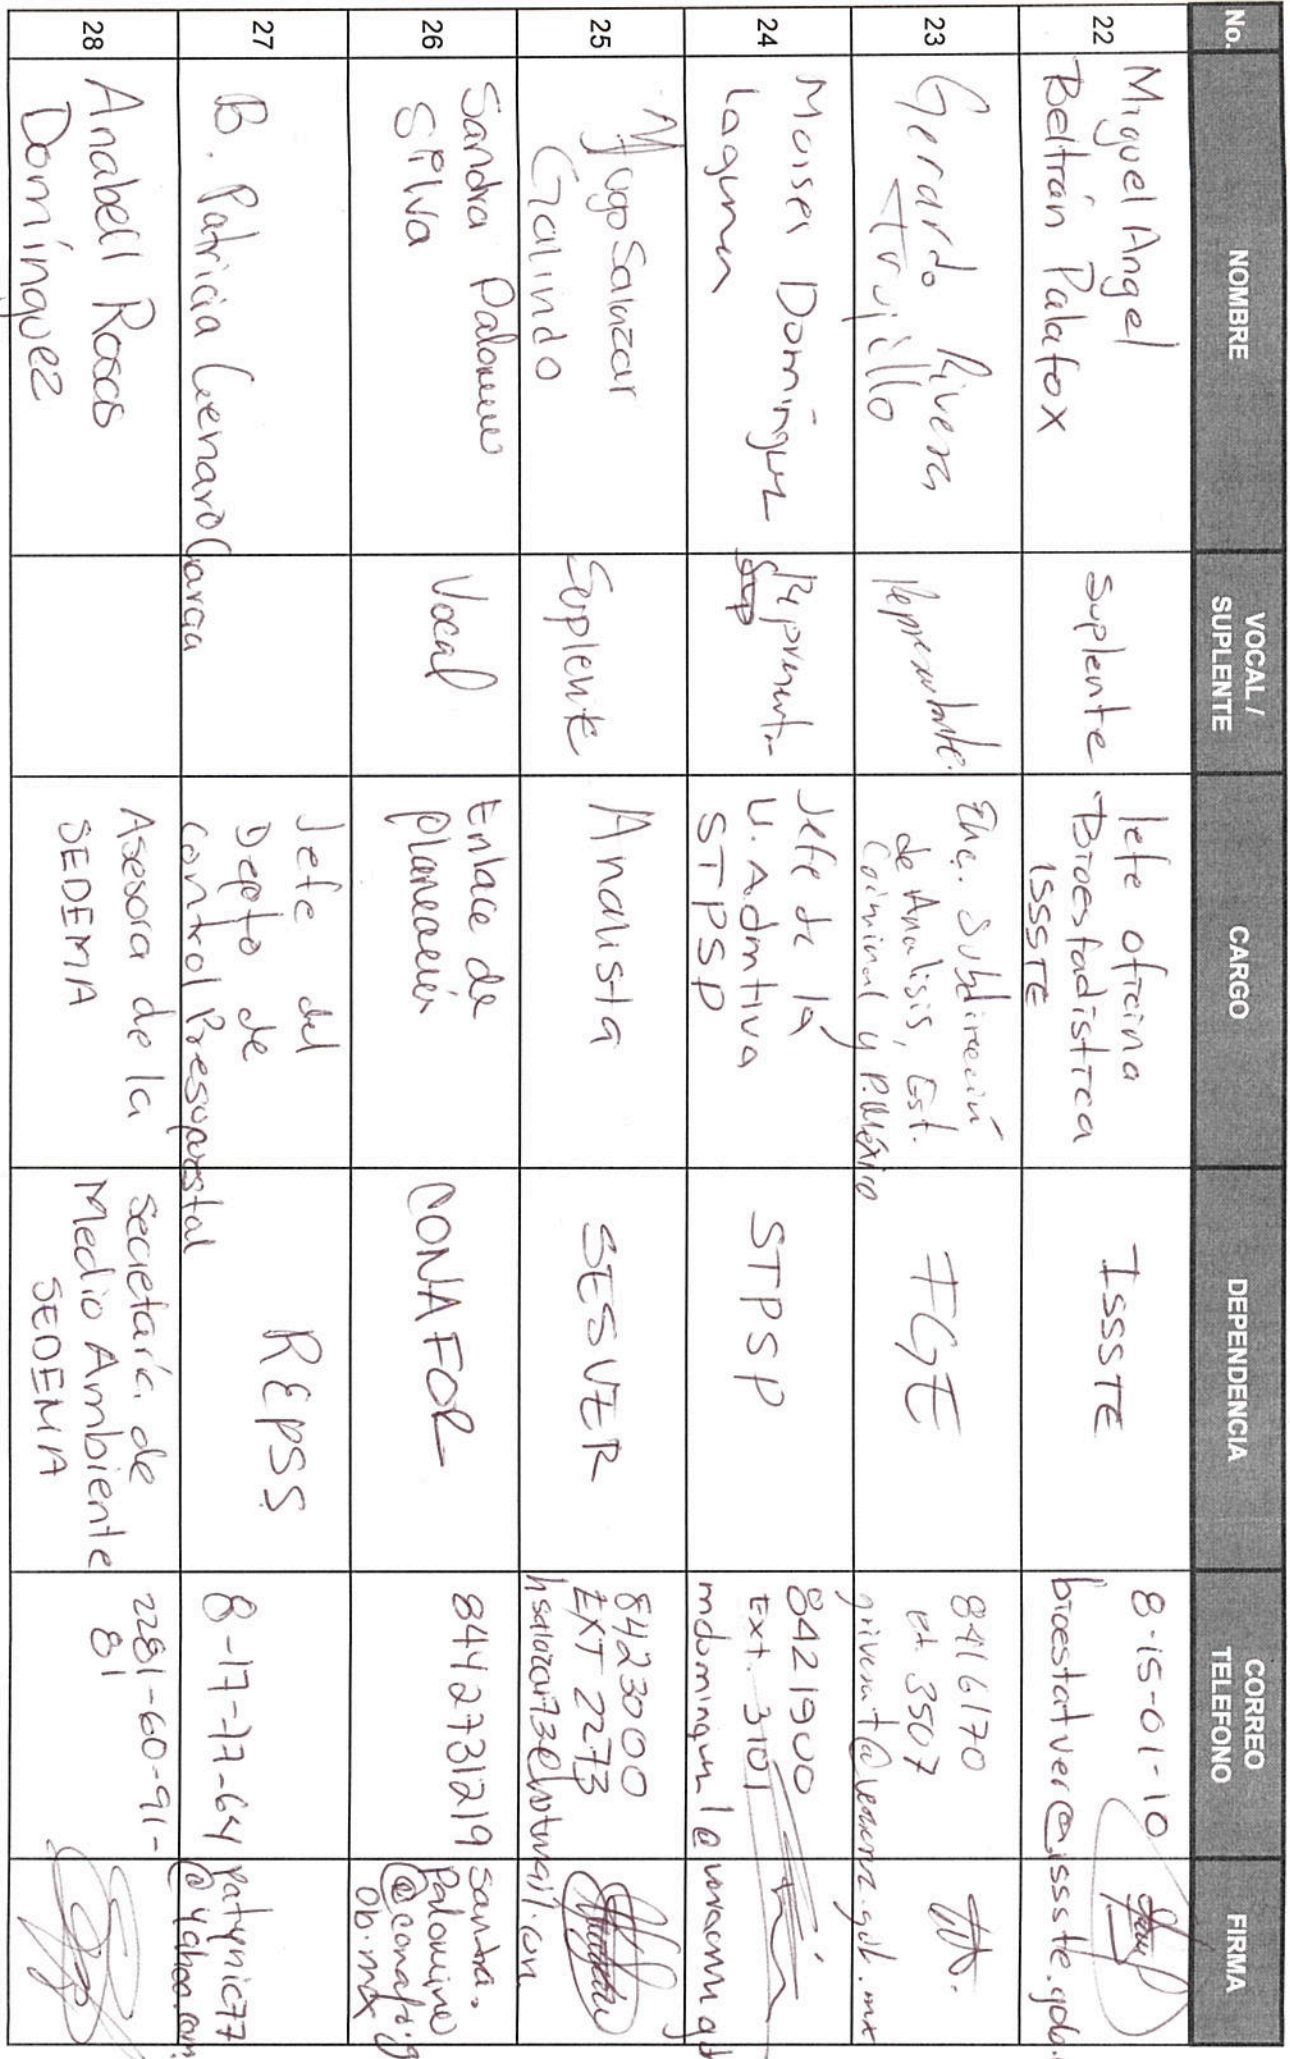 No. NOMBRE VOCAL / SUPLENTE CARGO DEPENDENCIA CORREO TELEFONO FIRMA
22
Miguel Angel
Beltrán Palafox
Suplente
Jefe oficina
Bioestadistica
ISSSTE
ISSSTE
8-15-01-10
bioestatver@issste.gob.
23
Gerardo Rivera
Trujillo
Representante.
Enc. Subdirección
de Analisis, Est.
Criminal y P. México
FGE
8416170
ext 3507
24
Moises Dominguez
Laguna
Jefe de la
U. Admtiva
STPSP
STPSP
8421900
Ext. 3101
25
Hugo Salazar
Galindo
Suplente
Analista
SESVER
8423000
EXT 2273
hsalazar73@hotmail.com
26
Sandra Palomino
Silva
Vocal
Enlace de
planeación
CONAFOR
8442731219
sandra.
palomino
@conafor.g
ob.mx
27
B. Patricia Genaro Garcia
Jefe del
Depto de
Control Presupuestal
REPSS
8-17-17-64
patynic77
@yahoo.com
28
Anabell Rosas
Domínguez
Asesora de la
SEDEMA
Secretaría de
Medio Ambiente
SEDEMA
2281-60-91-
81